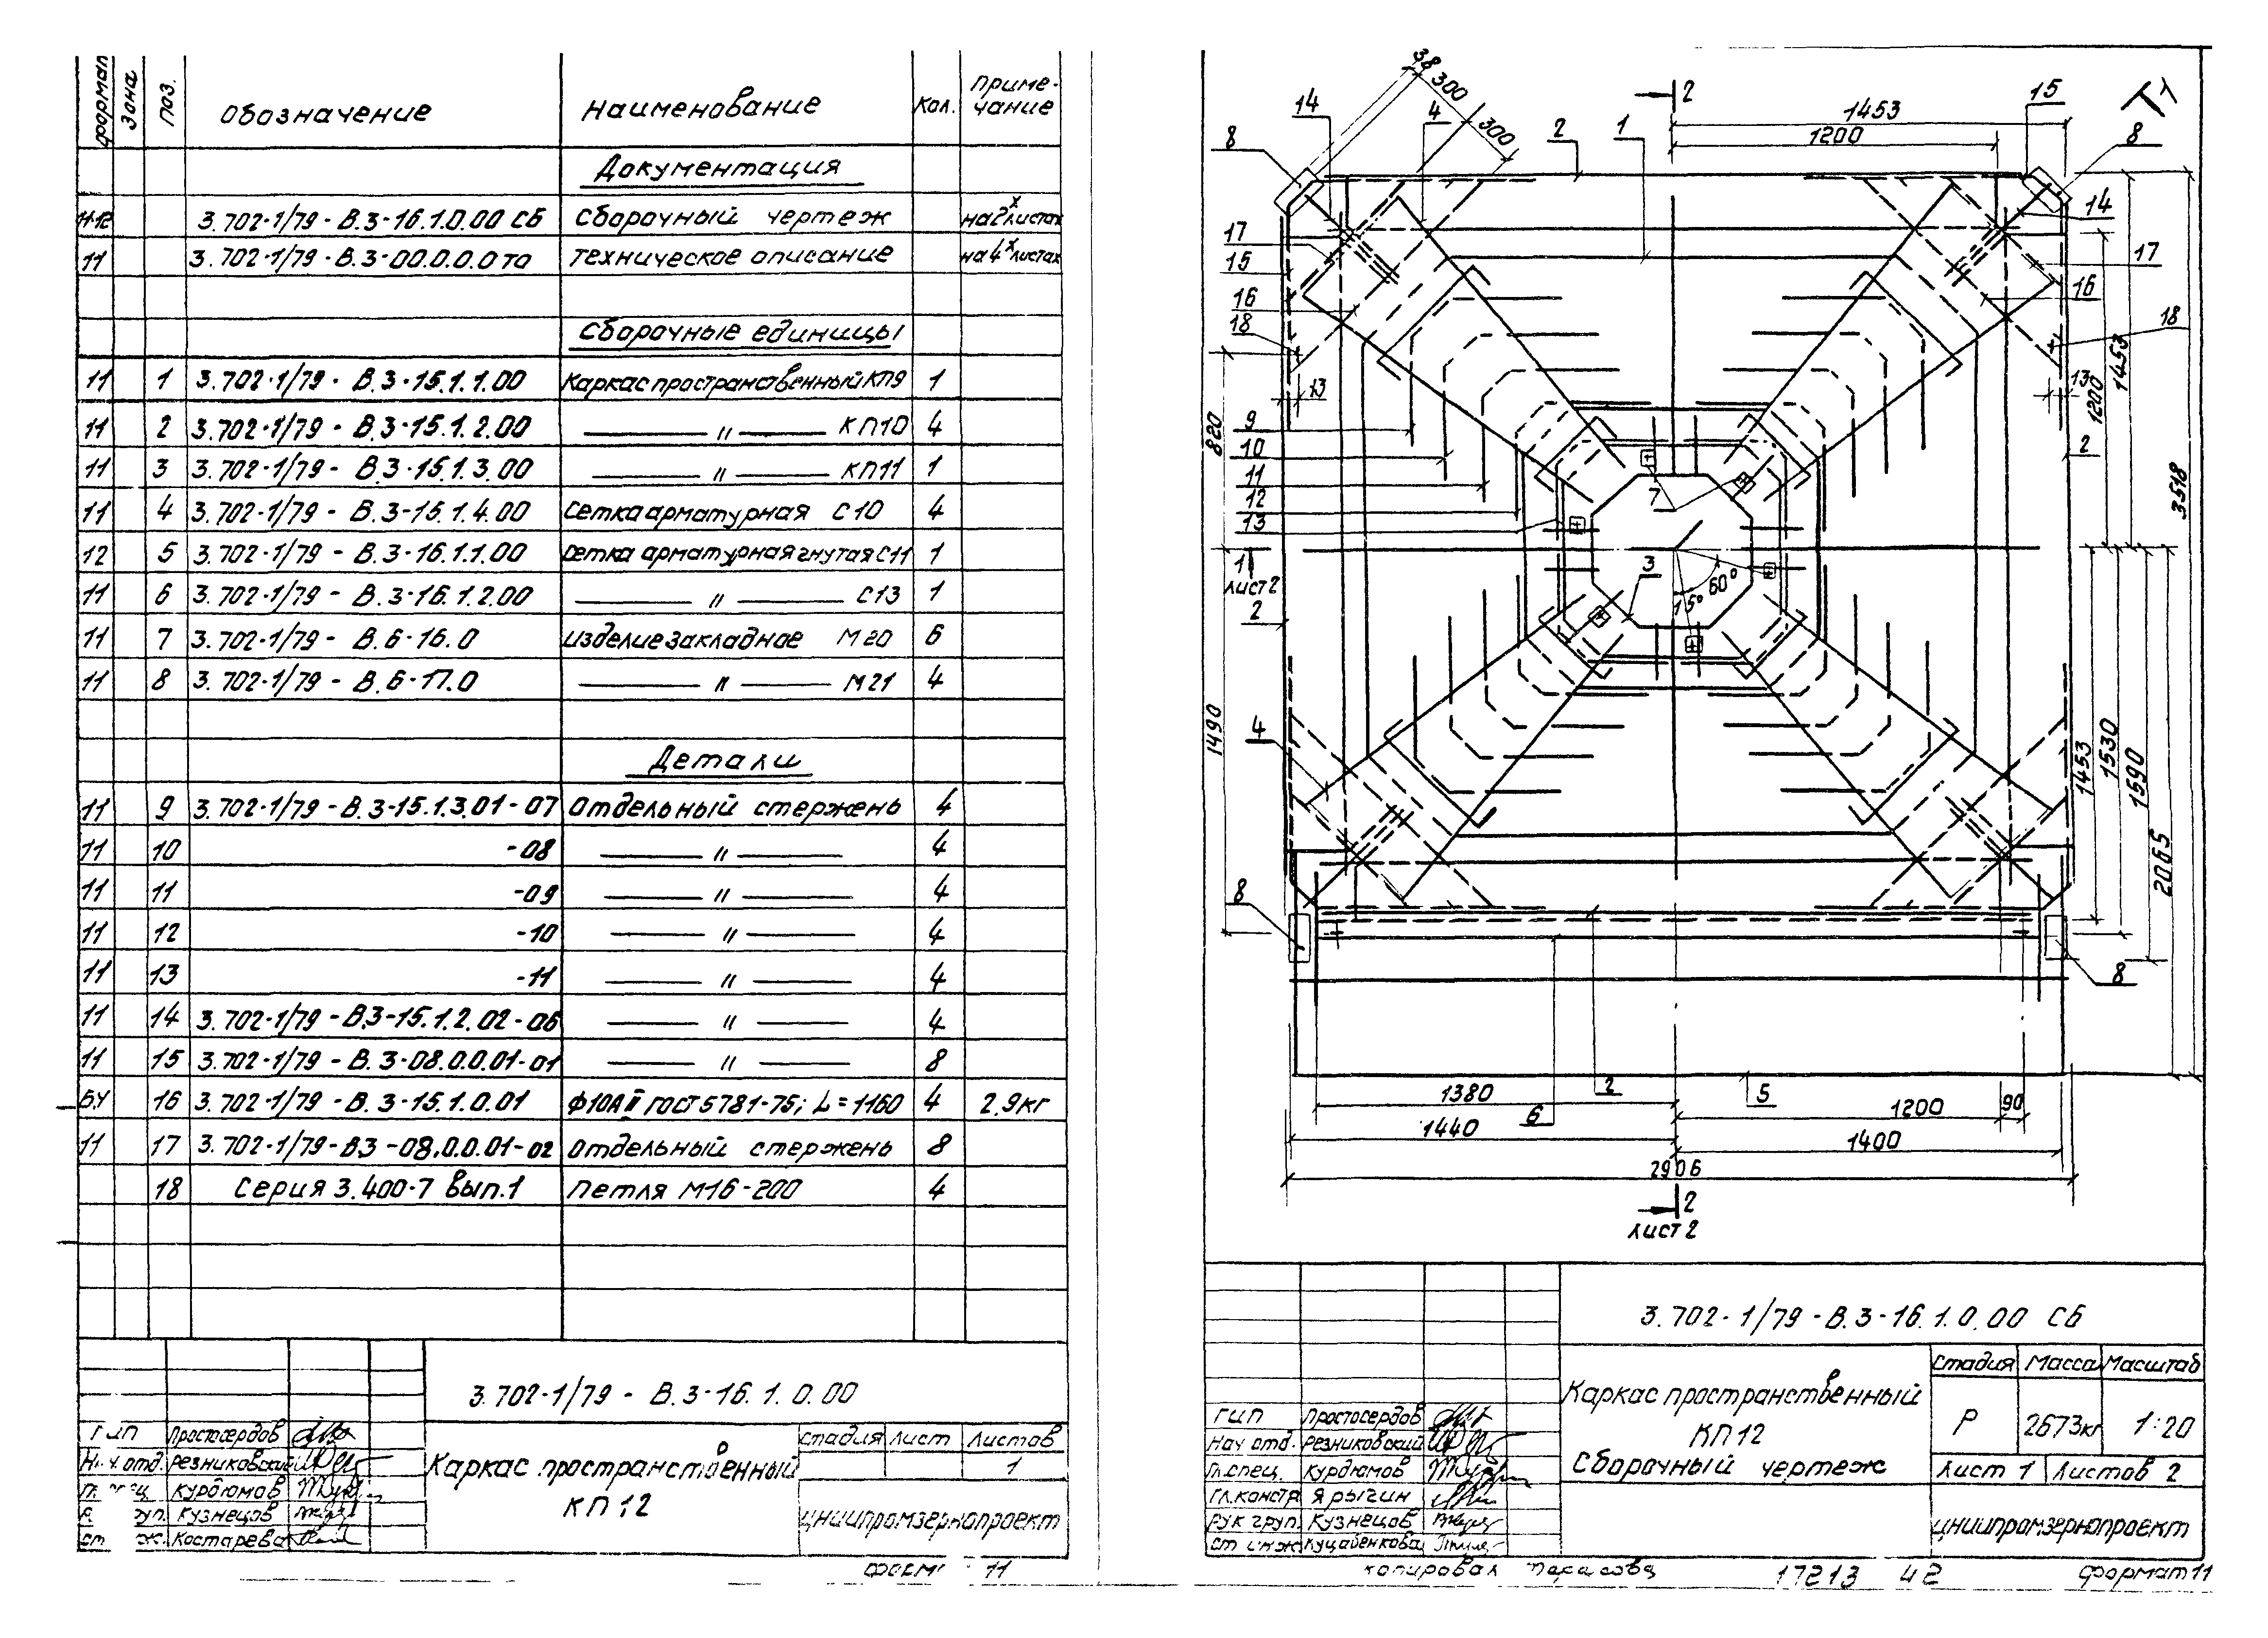 формат Зона Поз. Обозначение Наименование Кол. Приме-
чание
Документация
3.702-1/79 - В.3-16.1.0.00 СБ Сборочный чертеж на 2х листах
11 3.702-1/79 - В.3-00.0.0.0 ТО Техническое описание на 4х листах
Сборочные единицы
11 1 3.702-1/79 - В.3-15.1.1.00 Каркас пространственный КП9 1
11 2 3.702-1/79 - В.3-15.1.2.00 —〃— КП10 4
11 3 3.702-1/79 - В.3-15.1.3.00 —〃— КП11 1
11 4 3.702-1/79 - В.3-15.1.4.00 Сетка арматурная С10 4
12 5 3.702-1/79 - В.3-16.1.1.00 Сетка арматурная гнутая С11 1
11 6 3.702-1/79 - В.3-16.1.2.00 —〃— С13 1
11 7 3.702-1/79 - В.6-16.0 Изделие закладное М20 6
11 8 3.702-1/79 - В.6-17.0 —〃— М21 4
Детали
11 9 3.702-1/79 - В.3-15.1.3.01-07 Отдельный стержень 4
11 10 -08 —〃— 4
11 11 -09 —〃— 4
11 12 -10 —〃— 4
11 13 -11 —〃— 4
11 14 3.702-1/79 - В.3-15.1.2.02-06 —〃— 4
11 15 3.702-1/79 - В.3-08.0.0.01-01 —〃— 8
БЧ 16 3.702-1/79 - В.3-15.1.0.01 Ф10АII ГОСТ 5781-75; L=1160 4 2.9кг
11 17 3.702-1/79-В3-08.0.0.01-02 Отдельный стержень 8
18 Серия 3.400-7 вып.1 Петля М16-200 4
3.702-1/79 - В.3-16.1.0.00
ГИП Простосердов
отд. Резниковский
Курдюмов
Кузнецов
Костарева
Каркас пространственный
КП12
Стадия Лист Листов
1
ЦНИИпромзернопроект
11
38 300 300
2
1453
1200
15
Т1
14 4 2 1
8
8
14
17
15
16
18
17
16
18
13
13
820
1453
1200
3518
2
9
10
11
12
13
7
1
лист 2
2
3
15° 60°
1490
4
8
1453
1530
1590
2065
8
1380 2 5 1200 90
1440 6 1400
2906
2
лист 2
3.702-1/79 - В.3-16.1.0.00 СБ
Каркас пространственный
КП12
Сборочный чертеж
Стадия Масса Масштаб
Р 2673кг 1:20
Лист 1 Листов 2
ГИП Простосердов
Нач отд. Резниковский
Гл.спец. Курдюмов
Гл.констр Ярыгин
Рук груп. Кузнецов
ЦНИИпромзернопроект
копировал Тарасова 17213 42 Формат 11